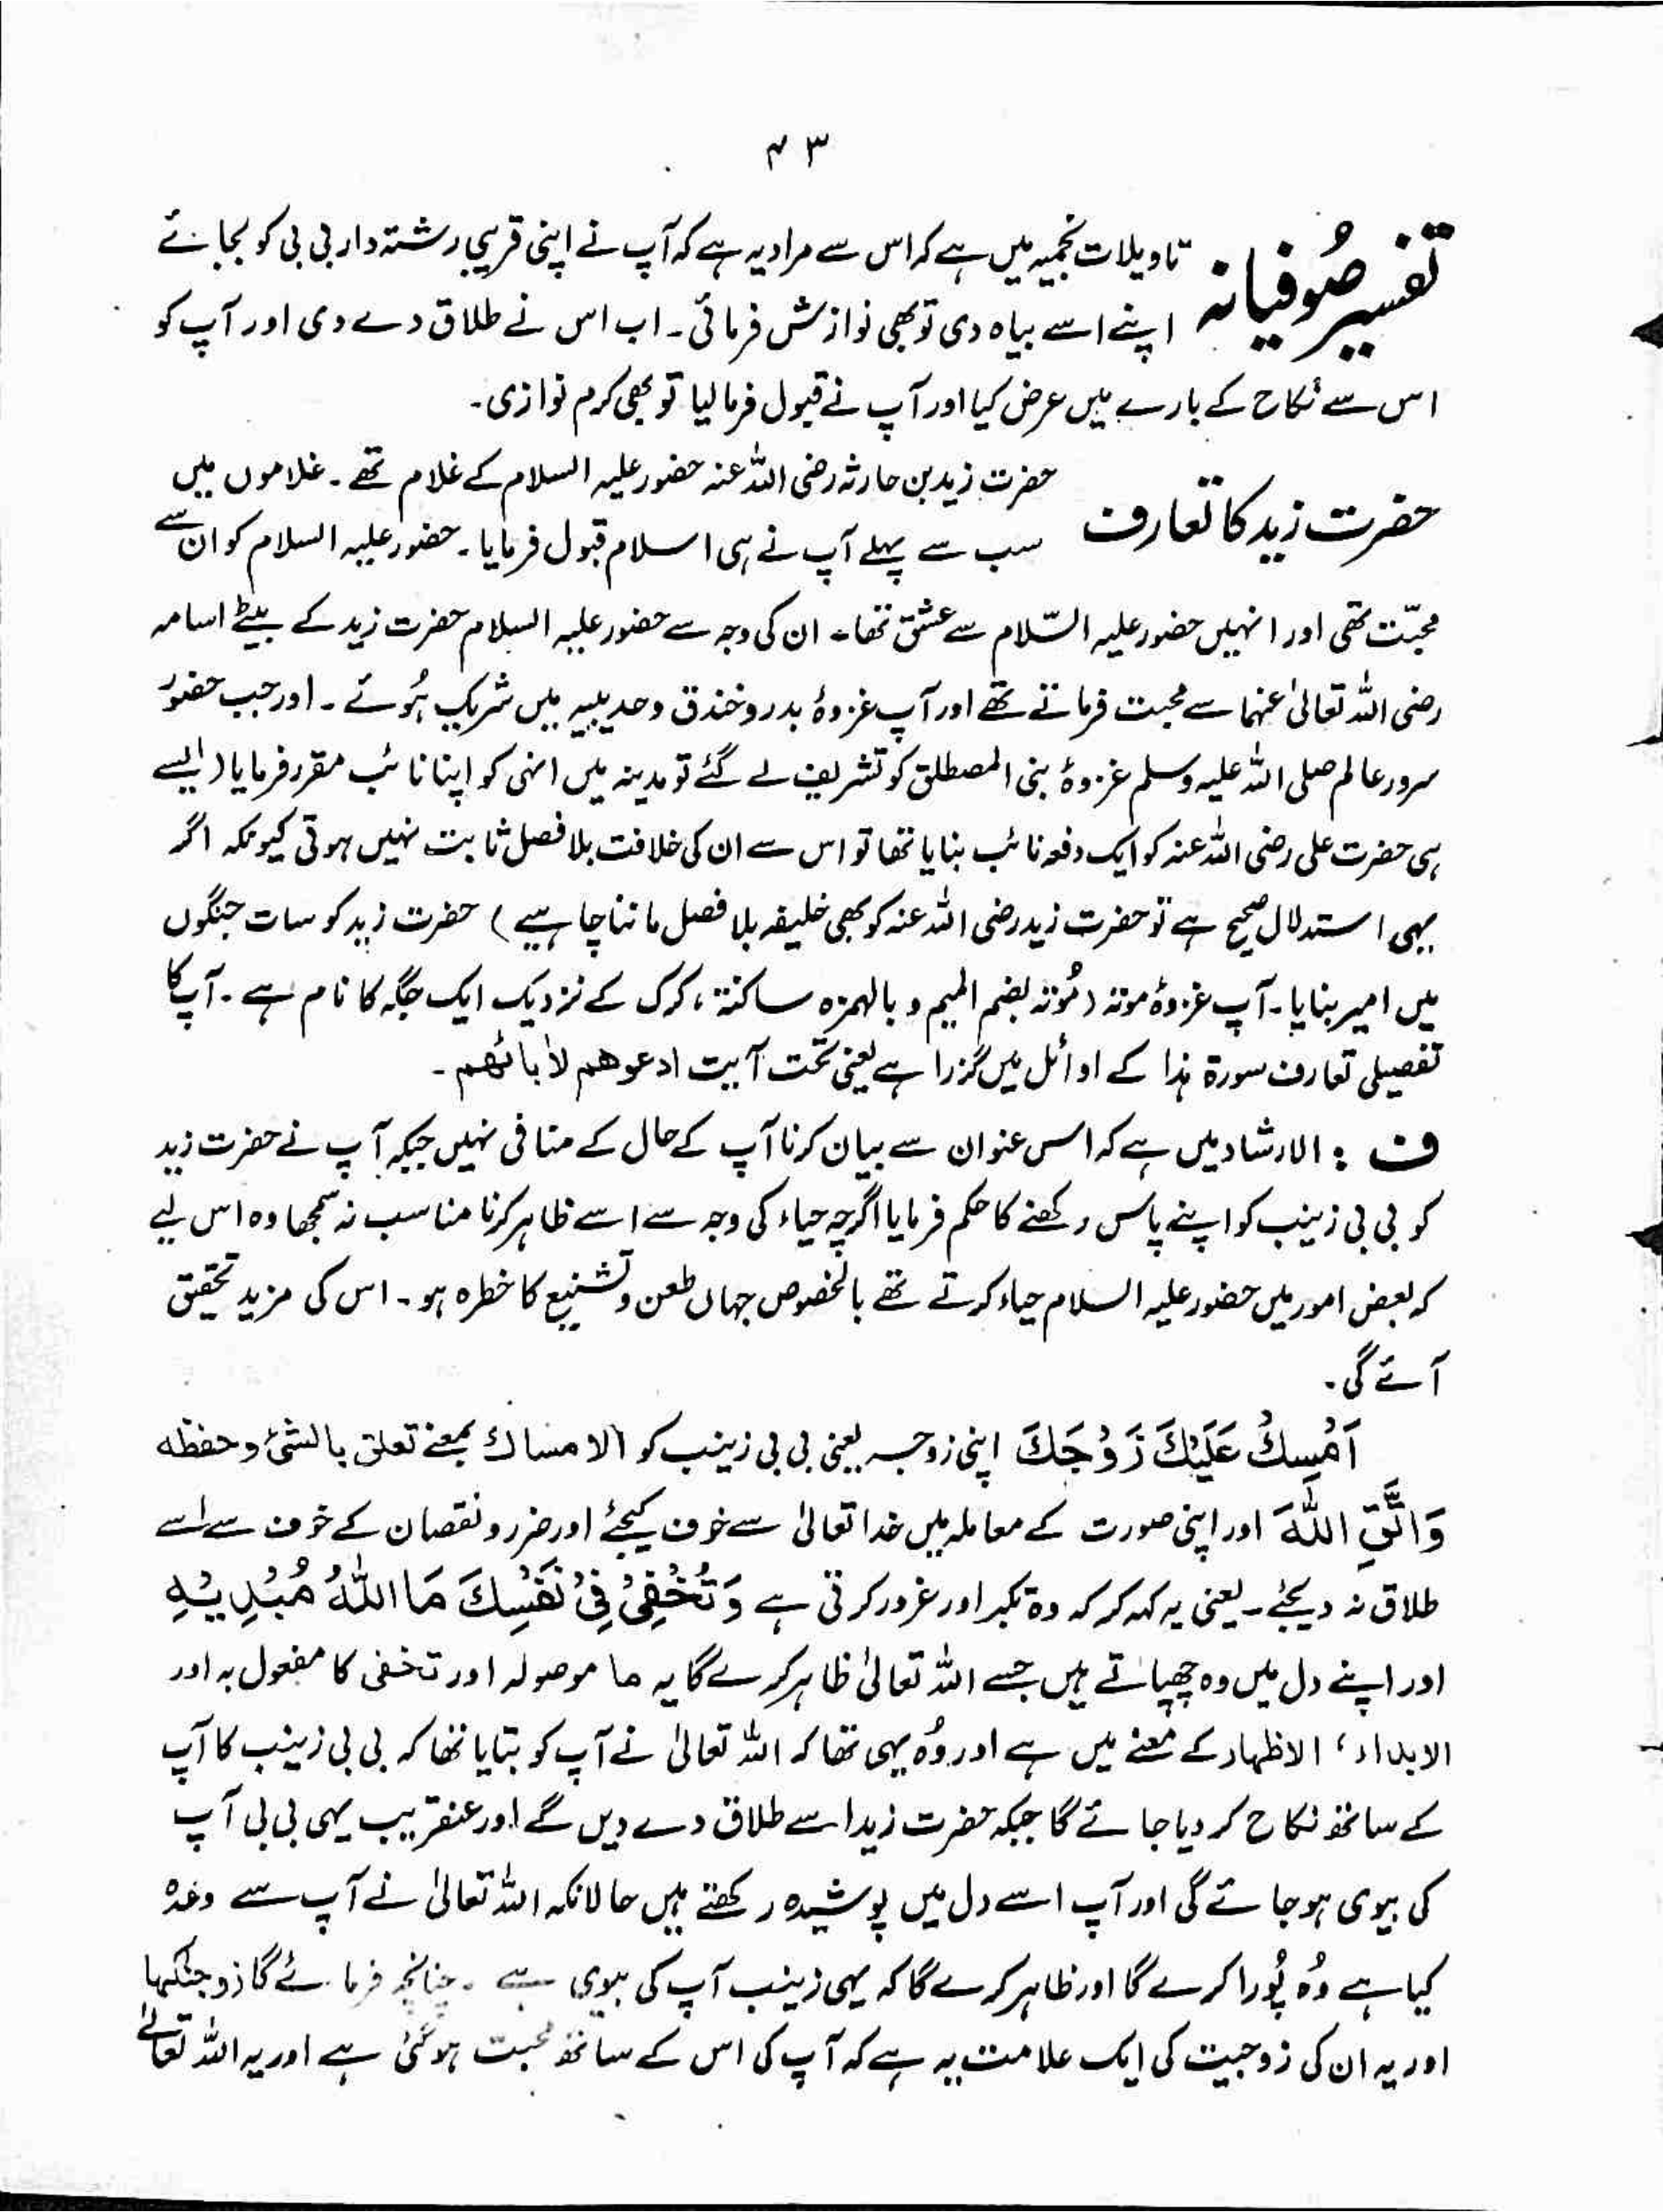 ۴۳
تفسیر صُوفیانہ تاویلات نجمیہ میں ہے کہ اس سے مراد یہ ہے کہ آپ نے اپنی قریبی رشتہ دار بی بی کو بجائے
اپنے اسے بیاہ دی تو بھی نوازش فرمائی۔ اب اس نے طلاق دے دی اور آپ کو
اس سے نکاح کے بارے میں عرض کیا اور آپ نے قبول فرمالیا تو بھی کرم نوازی۔
حضرت زید کا تعارف حضرت زید بن حارثہ رضی اللہ عنہ حضور علیہ السلام کے غلام تھے۔ غلاموں میں
سب سے پہلے آپ نے ہی اسلام قبول فرمایا۔ حضور علیہ السلام کو ان سے
محبّت تھی اور انہیں حضور علیہ السّلام سے عشق تھا۔ ان کی وجہ سے حضور علیہ السلام حضرت زید کے بیٹے اسامہ
رضی اللہ تعالیٰ عنہما سے محبت فرماتے تھے اور آپ غزوۂ بدر و خندق و حدیبیہ میں شریک ہُوئے۔ اور جب حضور
سرور عالم صلی اللہ علیہ وسلم غزوۂ بنی المصطلق کو تشریف لے گئے تو مدینہ میں انہی کو اپنا نائب مقرر فرمایا (ایسے
ہی حضرت علی رضی اللہ عنہ کو ایک دفعہ نائب بنایا تھا تو اس سے ان کی خلافت بلا فصل ثابت نہیں ہوتی کیونکہ اگر
یہی استدلال صحیح ہے تو حضرت زید رضی اللہ عنہ کو بھی خلیفہ بلا فصل ماننا چاہیے) حضرت زید کو سات جنگوں
میں امیر بنایا۔ آپ غزوۂ موتہ (مُوتہ بضم المیم و بالہمزہ ساکنۃ، کرک کے نزدیک ایک جگہ کا نام ہے۔ آپ کا
تفصیلی تعارف سورۃ ہذا کے اوائل میں گزرا ہے یعنی تحت آیت ادعوھم لأبائھم۔
ف : الارشاد میں ہے کہ اس عنوان سے بیان کرنا آپ کے حال کے منافی نہیں جبکہ آپ نے حضرت زید
کو بی بی زینب کو اپنے پاس رکھنے کا حکم فرمایا اگرچہ حیاء کی وجہ سے اسے ظاہر کرنا مناسب نہ سمجھا وہ اس لیے
کہ بعض امور میں حضور علیہ السلام حیاء کرتے تھے بالخصوص جہاں طعن و تشنیع کا خطرہ ہو۔ اس کی مزید تحقیق
آئے گی۔
اَمْسِكْ عَلَيْكَ زَوْجَكَ اپنی زوجہ یعنی بی بی زینب کو الامساك بمعنے تعلق بالشیٔ و حفظہ
وَاتَّقِ اللّٰهَ اور اپنی صورت کے معاملہ میں خدا تعالیٰ سے خوف کیجئے اور ضرر و نقصان کے خوف سے اسے
طلاق نہ دیجئے۔ یعنی یہ کہہ کر کہ وہ تکبر اور غرور کرتی ہے وَتُخْفِیْ فِیْ نَفْسِكَ مَا اللّٰهُ مُبْدِيْهِ
اور اپنے دل میں وہ چھپاتے ہیں جسے اللہ تعالیٰ ظاہر کرے گا یہ ما موصولہ اور تخفی کا مفعول بہ اور
الابداء، الاظہار کے معنے میں ہے اور وُہ یہی تھا کہ اللہ تعالیٰ نے آپ کو بتایا تھا کہ بی بی زینب کا آپ
کے ساتھ نکاح کر دیا جائے گا جبکہ حضرت زید اسے طلاق دے دیں گے اور عنقریب یہی بی بی آپ
کی بیوی ہو جائے گی اور آپ اسے دل میں پوشیدہ رکھتے ہیں حالانکہ اللہ تعالیٰ نے آپ سے وعدہ
کیا ہے وُہ پُورا کرے گا اور ظاہر کرے گا کہ یہی زینب آپ کی بیوی ہے۔ چنانچہ فرمائے گا زوجنکھا
اور یہ ان کی زوجیت کی ایک علامت یہ ہے کہ آپ کی اس کے ساتھ محبت ہو گئی ہے اور یہ اللہ تعالےٰ